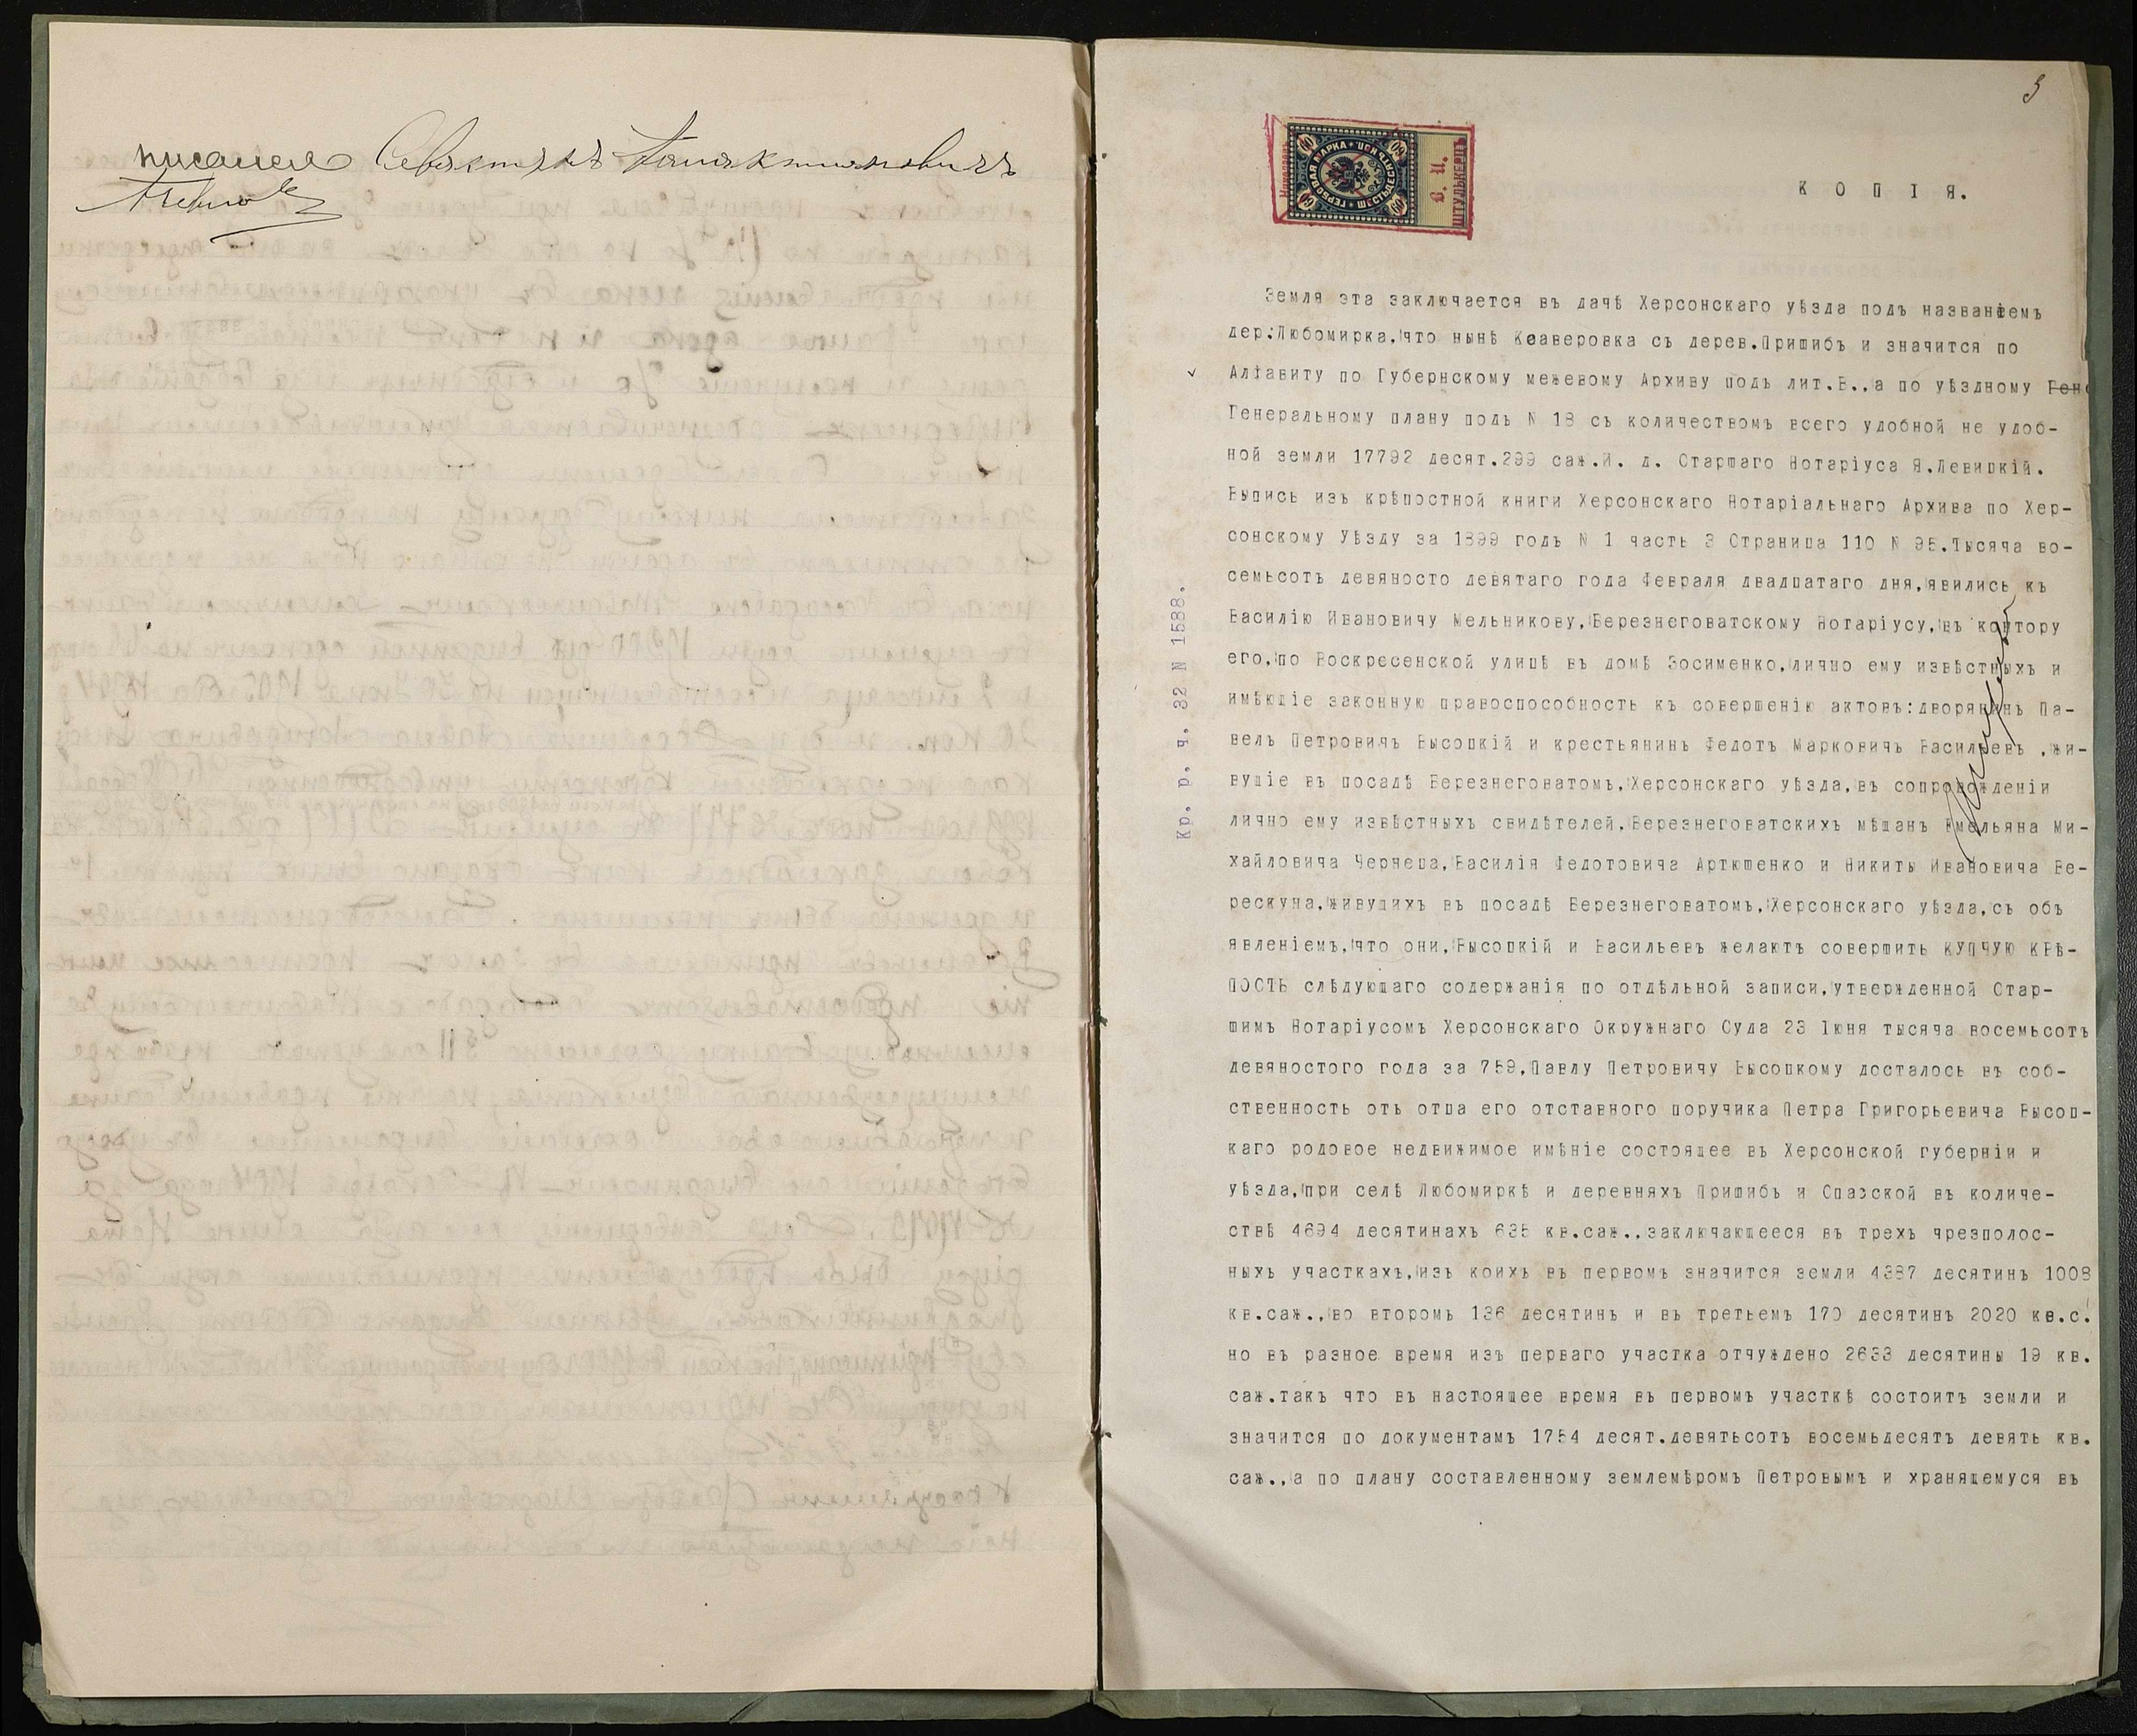 писался
3
ГЕРБОВАЯ МАРКА
60
В. И.
ШТУЛЬКЕРЦЪ
КОПІЯ.
Земля эта заключается въ дачѣ Херсонскаго уѣзда подъ названіемъ
дер.Любомирка,что нынѣ Ксаверовка съ дерев.Пришибъ и значится по
Алфавиту по Губернскому межевому Архиву подъ лит.В.,а по уѣздному Гене
Генеральному плану подъ N 18 съ количествомъ всего удобной не удоб-
ной земли 17792 десят.299 саж.И. д. Старшаго Нотаріуса Я.Левицкій.
Выпись изъ крѣпостной книги Херсонскаго Нотаріальнаго Архива по Хер-
сонскому Уѣзду за 1899 годъ N 1 часть 3 Страница 110 N 95.Тысяча во-
семьсотъ девяносто девятаго года Февраля двадцатаго дня,явились къ
Василію Ивановичу Мельникову,Березнеговатскому Нотаріусу,въ контору
его,по Воскресенской улицѣ въ домѣ Зосименко,лично ему извѣстныхъ и
имѣющіе законную правоспособность къ совершенію актовъ:дворянинъ Па-
велъ Петровичъ Высоцкій и крестьянинъ Федотъ Марковичъ Васильевъ ,жи-
вущіе въ посадѣ Березнеговатомъ,Херсонскаго уѣзда,въ сопровожденіи
лично ему извѣстныхъ свидѣтелей,Березнеговатскихъ мѣщанъ Емельяна Ми-
хайловича Чернеца,Василія Федотовича Артюшенко и Никиты Ивановича Ве-
рескуна,живущихъ въ посадѣ Березнеговатомъ,Херсонскаго уѣзда,съ объ
явленіемъ,что они,Высоцкій и Васильевъ желаютъ совершить КУПЧУЮ КРѢ-
ПОСТЬ слѣдующаго содержанія по отдѣльной записи,утвержденной Стар-
шимъ Нотаріусомъ Херсонскаго Окружнаго Суда 23 Іюня тысяча восемьсотъ
девяностого года за 759,Павлу Петровичу Высоцкому досталось въ соб-
ственность отъ отца его отставного поручика Петра Григорьевича Высоц-
каго родовое недвижимое имѣніе состоящее въ Херсонской губерніи и
уѣзда,при селѣ Любомиркѣ и деревняхъ Пришибъ и Спасской въ количе-
ствѣ 4694 десятинахъ 635 кв.саж.,заключающееся въ трехъ чрезполос-
ныхъ участкахъ,изъ коихъ въ первомъ значится земли 4387 десятинъ 1008
кв.саж.,во второмъ 136 десятинъ и въ третьемъ 170 десятинъ 2020 кв.с.
но въ разное время изъ перваго участка отчуждено 2633 десятины 19 кв.
саж.такъ что въ настоящее время въ первомъ участкѣ состоитъ земли и
значится по документамъ 1754 десят.девятьсотъ восемьдесятъ девять кв.
саж.,а по плану составленному землемѣромъ Петровымъ и хранящемуся въ
Кр. р. ч. 32 N 1588.